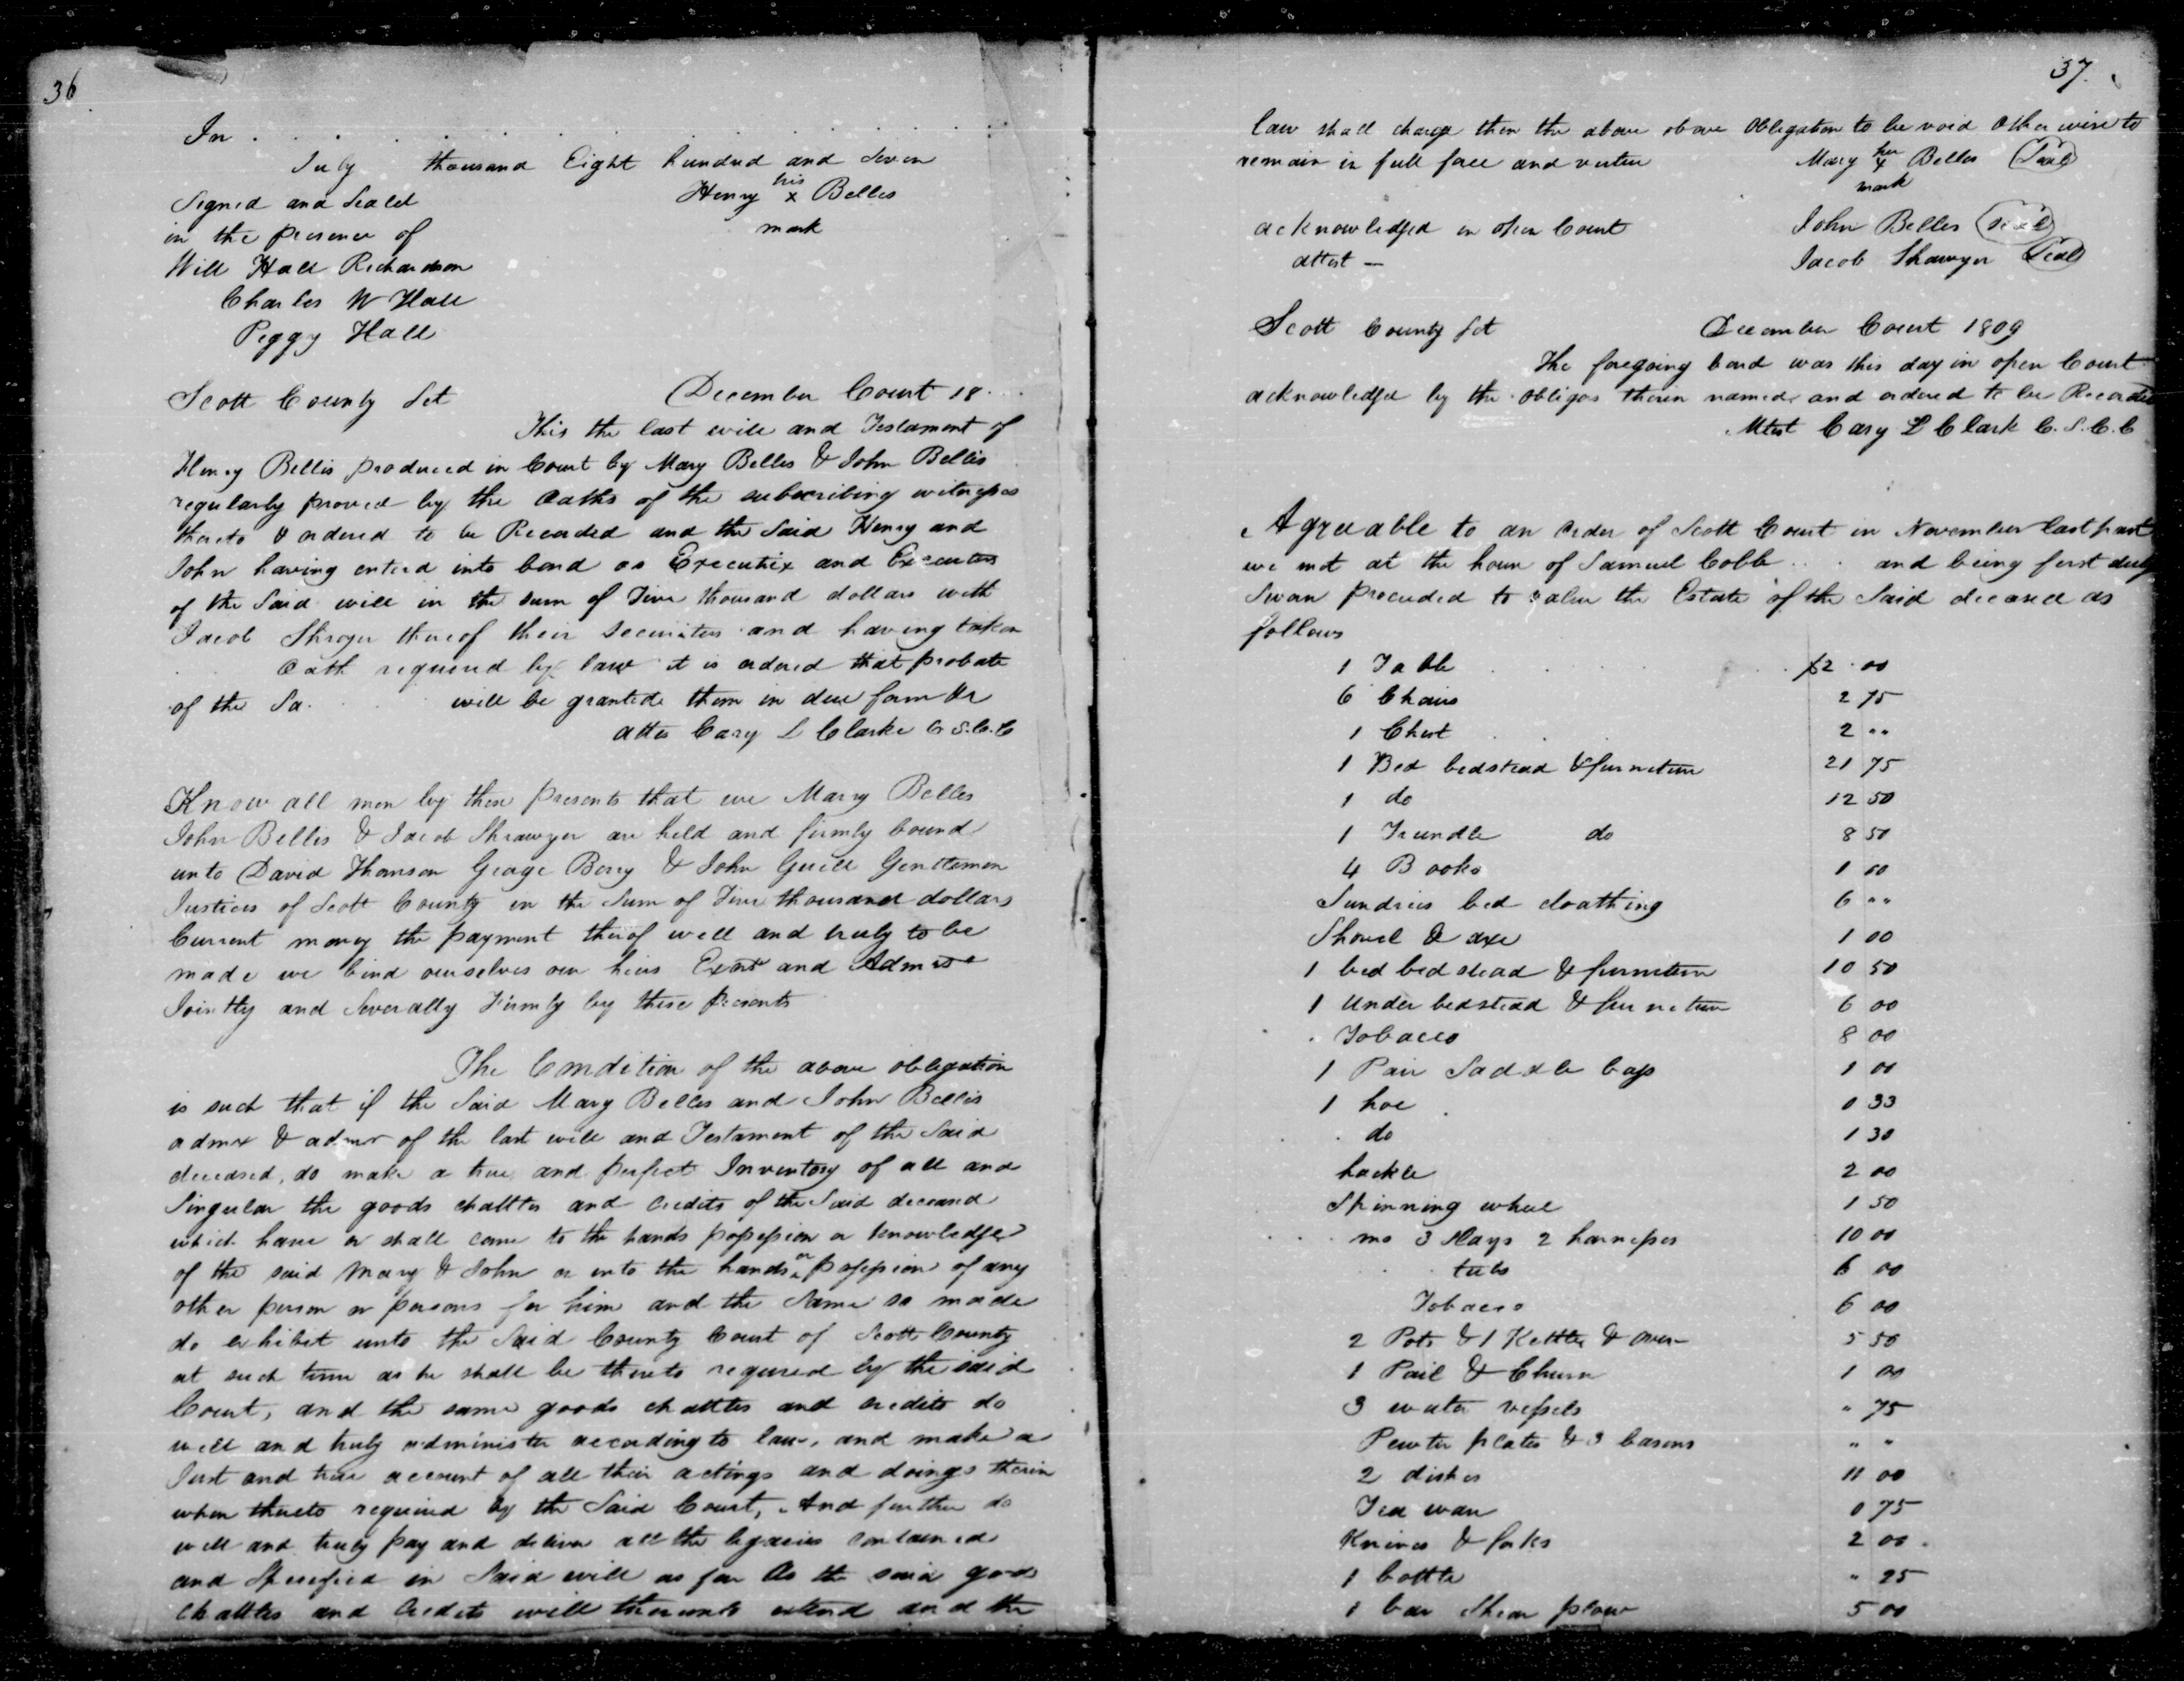 36
In
July thousand Eight hundred and Seven
Signed and Seald Henry his x mark Belles
in the presence of
Will Hall Richardson
Charles W Hall
Peggy Hall
Scott County Sct December Court 18
This the last will and Testament of
Henry Bellis produced in Court by Mary Belles & John Bellis
regularly proved by the Oaths of the subscribing witnesses
thereto & ordered to be Recorded and the Said Henry and
John having enterd into bond as Executrix and Executors
of the Said will in the sum of thousand dollars with
Jacob Shroyer thereof their securities and having taken
Oath required by law it is ordered that probate
of the Sa will be granted them in due form &c
attes Cary L Clarke C S.C.C
Know all men by these presents that we Mary Belles
John Bellis & Jacob Shrawyer are held and firmly bound
unto David Thomson George Berry & John Guill Gentlemen
Justices of Scott County in the Sum of thousand dollars
Current money the payment therof well and truly to be
made we bind ourselves our heirs Exors and Admrs
Jointly and Severally Firmly by these presents
The Condition of the above obligation
is such that if the Said Mary Belles and John Bellis
admx & admr of the last will and Testament of the Said
deceased, do make a true and perfect Inventory of all and
Singular the goods chattles and Credits of the Said deceased
which have or shall come to the hands possession or knowledge
of the said Mary & John or into the hands or possession of any
other person or persons for him and the Same so made
do exhibit unto the Said County Court of Scott County
at such time as he shall be thereto requred by the said
Court, and the same goods chattles and credits do
well and truly administer according to law, and make a
Just and true account of all their actings and doings therin
when thereto required by the Said Court, And further do
well and truly pay and deliver all the legacies contained
and Specified in Said will as far As the said goods
Chattles and Credits will thereunto extend and the
37.
law shall charge then the above above Obligation to be void Otherwise to
remain in full force and virtue Mary her x mark Belles (Seal)
acknowledged in open Court John Belles (Seal)
attest — Jacob Shawyer (Seal)
Scott County Sct December Court 1809
The foregoing bond was this day in open Court
acknowledged by the obligos therin named and ordered to be Recorded
Attest Cary L Clark C.S.C.C
Agreeable to an order of Scott Court in November last past
we met at the house of Samuel Cobb and being first duly
Sworn proceeded to value the Estate of the Said deceased as
follows
1 Table $2.00
6 Chairs 2 75
1 Chest 2 ""
1 Bed bedstead & furniture 21 75
1 do 12 50
1 Trundle do 8 50
4 Books 1 00
Sundries bed cloathing 6 ""
Shovel & axe 1 00
1 bed bedstead & furniture 10 50
1 Under bedstead & furneture 6 00
Tobacco 8 00
1 Pair Saddle bags 1 00
1 hoe 0 33
do 1 30
hackle 2 00
Spinning wheel 1 50
3 Slays 2 harnesses 10 00
tubs 6 00
Tobacco 6 00
2 Pots & 1 Kettle & oven 5 50
1 Pail & Churn 1 00
3 water vessels " 75
Pewter plates & 3 basons " "
2 dishes 11 00
Tea ware 0 75
Knives & forks 2 00
1 bottle " 25
1 bar Shear plow 5 00